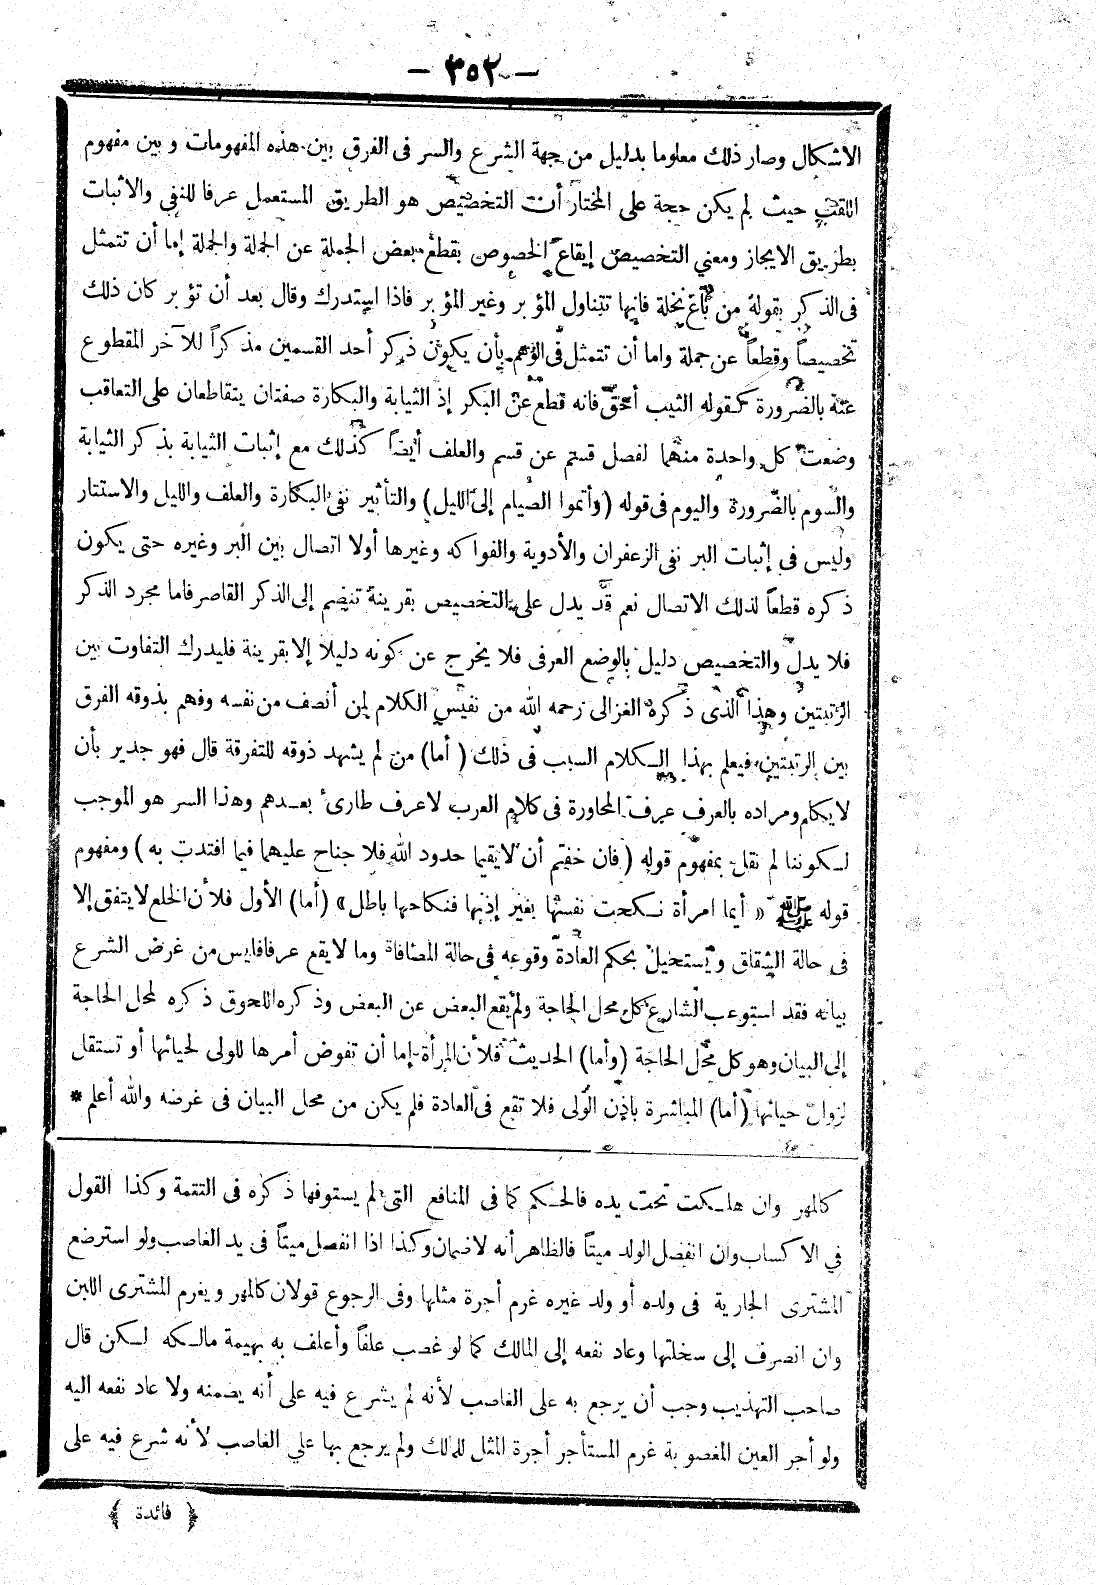 — ٣٥٢ —
الاشكال وصار ذلك معلوما بدليل من جهة الشرع والسر فى الفرق بين هذه المفهومات وبين مفهوم
اللقب حيث لم يكن حجة على المختار أن التخصيص هو الطريق المستعمل عرفا للنفي والاثبات
بطريق الايجاز ومعني التخصيص إيقاع الخصوص بقطع بعض الجملة عن الجملة والجملة إما أن تتمثل
فى الذكر بقوله من باع نخلة فانها تتناول المؤبر وغير المؤبر فاذا استدرك وقال بعد أن تؤبر كان ذلك
تخصيصاً وقطعاً عن جملة واما أن تتمثل فى الوهم بأن يكون ذكر أحد القسمين مذكراً للآخر المقطوع
عنه بالضرورة كقوله الثيب أحق فانه قطع عن البكر إذ الثيابة والبكارة صفتان يتقاطعان على التعاقب
وضعت كل واحدة منهما لفصل قسم عن قسم والعلف أيضاً كذلك مع إثبات الثيابة بذكر الثيابة
والسوم بالضرورة واليوم فى قوله (وأتموا الصيام إلى الليل) والتأثير نفى البكارة والعلف والليل والاستتار
وليس في إثبات البر نفى الزعفران والأدوية والفواكه وغيرها أولا اتصال بين البر وغيره حتى يكون
ذكره قطعاً لذلك الاتصال نعم قد يدل على التخصيص بقرينة تنضم إلى الذكر القاصر فاما مجرد الذكر
فلا يدل والتخصيص دليل بالوضع العرفى فلا يخرج عن كونه دليلا إلا بقرينة فليدرك التفاوت بين
الرتبتين وهذا الذى ذكره الغزالى رحمه الله من نفيس الكلام لمن أنصف من نفسه وفهم بذوقه الفرق
بين الرتبتين فيعلم بهذا الـكلام السبب فى ذلك (أما) من لم يشهد ذوقه للتفرقة قال فهو جدير بأن
لا يكلم ومراده بالعرف عرف المحاورة فى كلام العرب لا عرف طارئ بعـدهم وهذا السر هو الموجب
لـكوننا لم نقل بمفهوم قوله (فان خفتم أن لا يقيما حدود الله فلا جناح عليهما فيما افتدت به) ومفهوم
قوله ﷺ « أيما امرأة نـكحت نفسها بغير إذنها فنكاحها باطل» (أما) الأول فلأن الخلع لا يتفق إلا
فى حالة الشقاق ويستحيل بحكم العادة وقوعه فى حالة المصافاة وما لا يقع عرفا فليس من غرض الشرع
بيانه فقد استوعب الشارع كل محل الحاجة ولم يقع البعض عن البعض وذكره اللحوق ذكره لمحل الحاجة
إلى البيان وهو كل محل الحاجة (وأما) الحديث فلأن المرأة إما أن تفوض أمرها للولى لحيائها أو تستقل
لزوال حيائها (أما) المباشرة باذن الولى فلا تقع فى العادة فلم يكن من محل البيان فى غرضه والله أعلم *
كالمهر وان هلـكت تحت يده فالحـكم كما فى المنافع التى لم يستوفها ذكره فى التتمة وكذا القول
في الاكساب وان انفصل الولد ميتاً فالظاهر أنه لا ضمان وكذا اذا انفصل ميتاً فى يد الغاصب ولو استرضع
المشترى الجارية فى ولده أو ولد غيره غرم أجرة مثلها وفى الرجوع قولان كالمهر ويغرم المشترى اللبن
وان انصرف إلى سخلتها وعاد نفعه إلى المالك كما لو غصب علفاً وأعلف به بهيمة مالـكه لـكن قال
صاحب التهذيب وجب أن يرجع به على الغاصب لأنه لم يشرع فيه على أنه يضمنه ولا عاد نفعه اليه
ولو أجر العين المغصوبة غرم المستأجر أجرة المثل للمالك ولم يرجع بها علي الغاصب لأنه شرع فيه على
﴿ فائدة ﴾